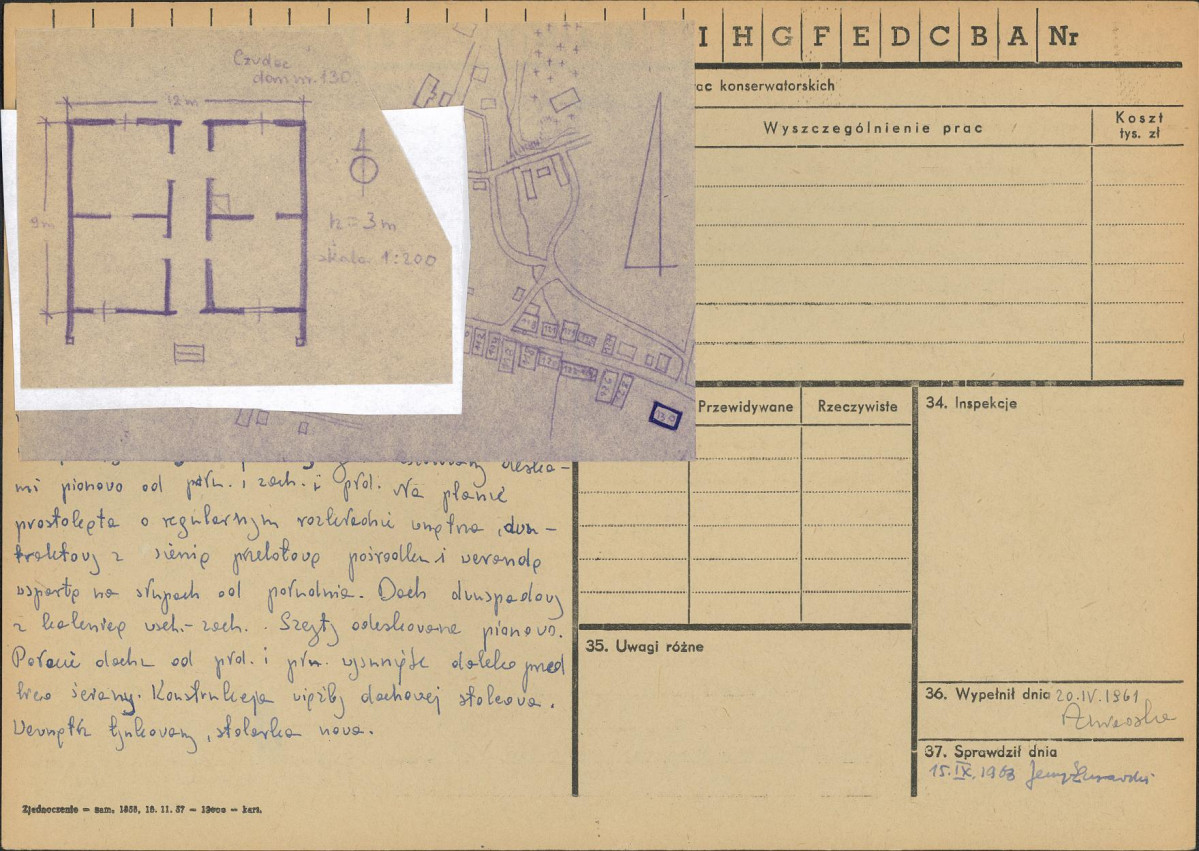 I H G F E D C B A Nr
ac konserwatorskich
Wyszczególnienie prac
Koszt
tys. zł
Czudec
dom nr. 130
12 m
9 m
h = 3 m
skala 1:200
130
mi pionowo od płn. i zach. i płd. Na planie
prostokąta o regularnym rozkładzie wnętrza, dwu-
traktowy z sienią przelotową pośrodku i werandą
wspartą na słupach od południa. Dach dwuspadowy
z kalenicą wsch.-zach. . Szczyty odeskowane pionowo.
Połacie dachu od płd. i płn. wysunięte daleko przed
lico ściany. Konstrukcja więźby dachowej stolcowa.
Wewnątrz tynkowany, stolarka nowa.
Przewidywane
Rzeczywiste
34. Inspekcje
35. Uwagi różne
36. Wypełnił dnia 20.IV.1961
37. Sprawdził dnia
15.IX.1963 Jerzy Żurawski
Zjednoczenie — zam. 1858, 18. 11. 57 — — kart.